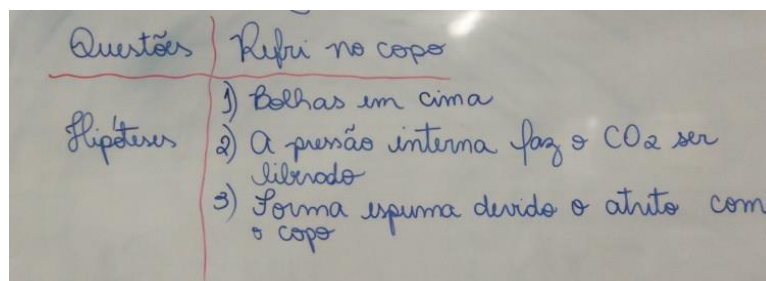 Questões Refri no copo
Hipóteses 1) Bolhas em cima
2) A pressão interna faz o CO2 ser
liberado
3) Forma espuma devido o atrito com
o copo